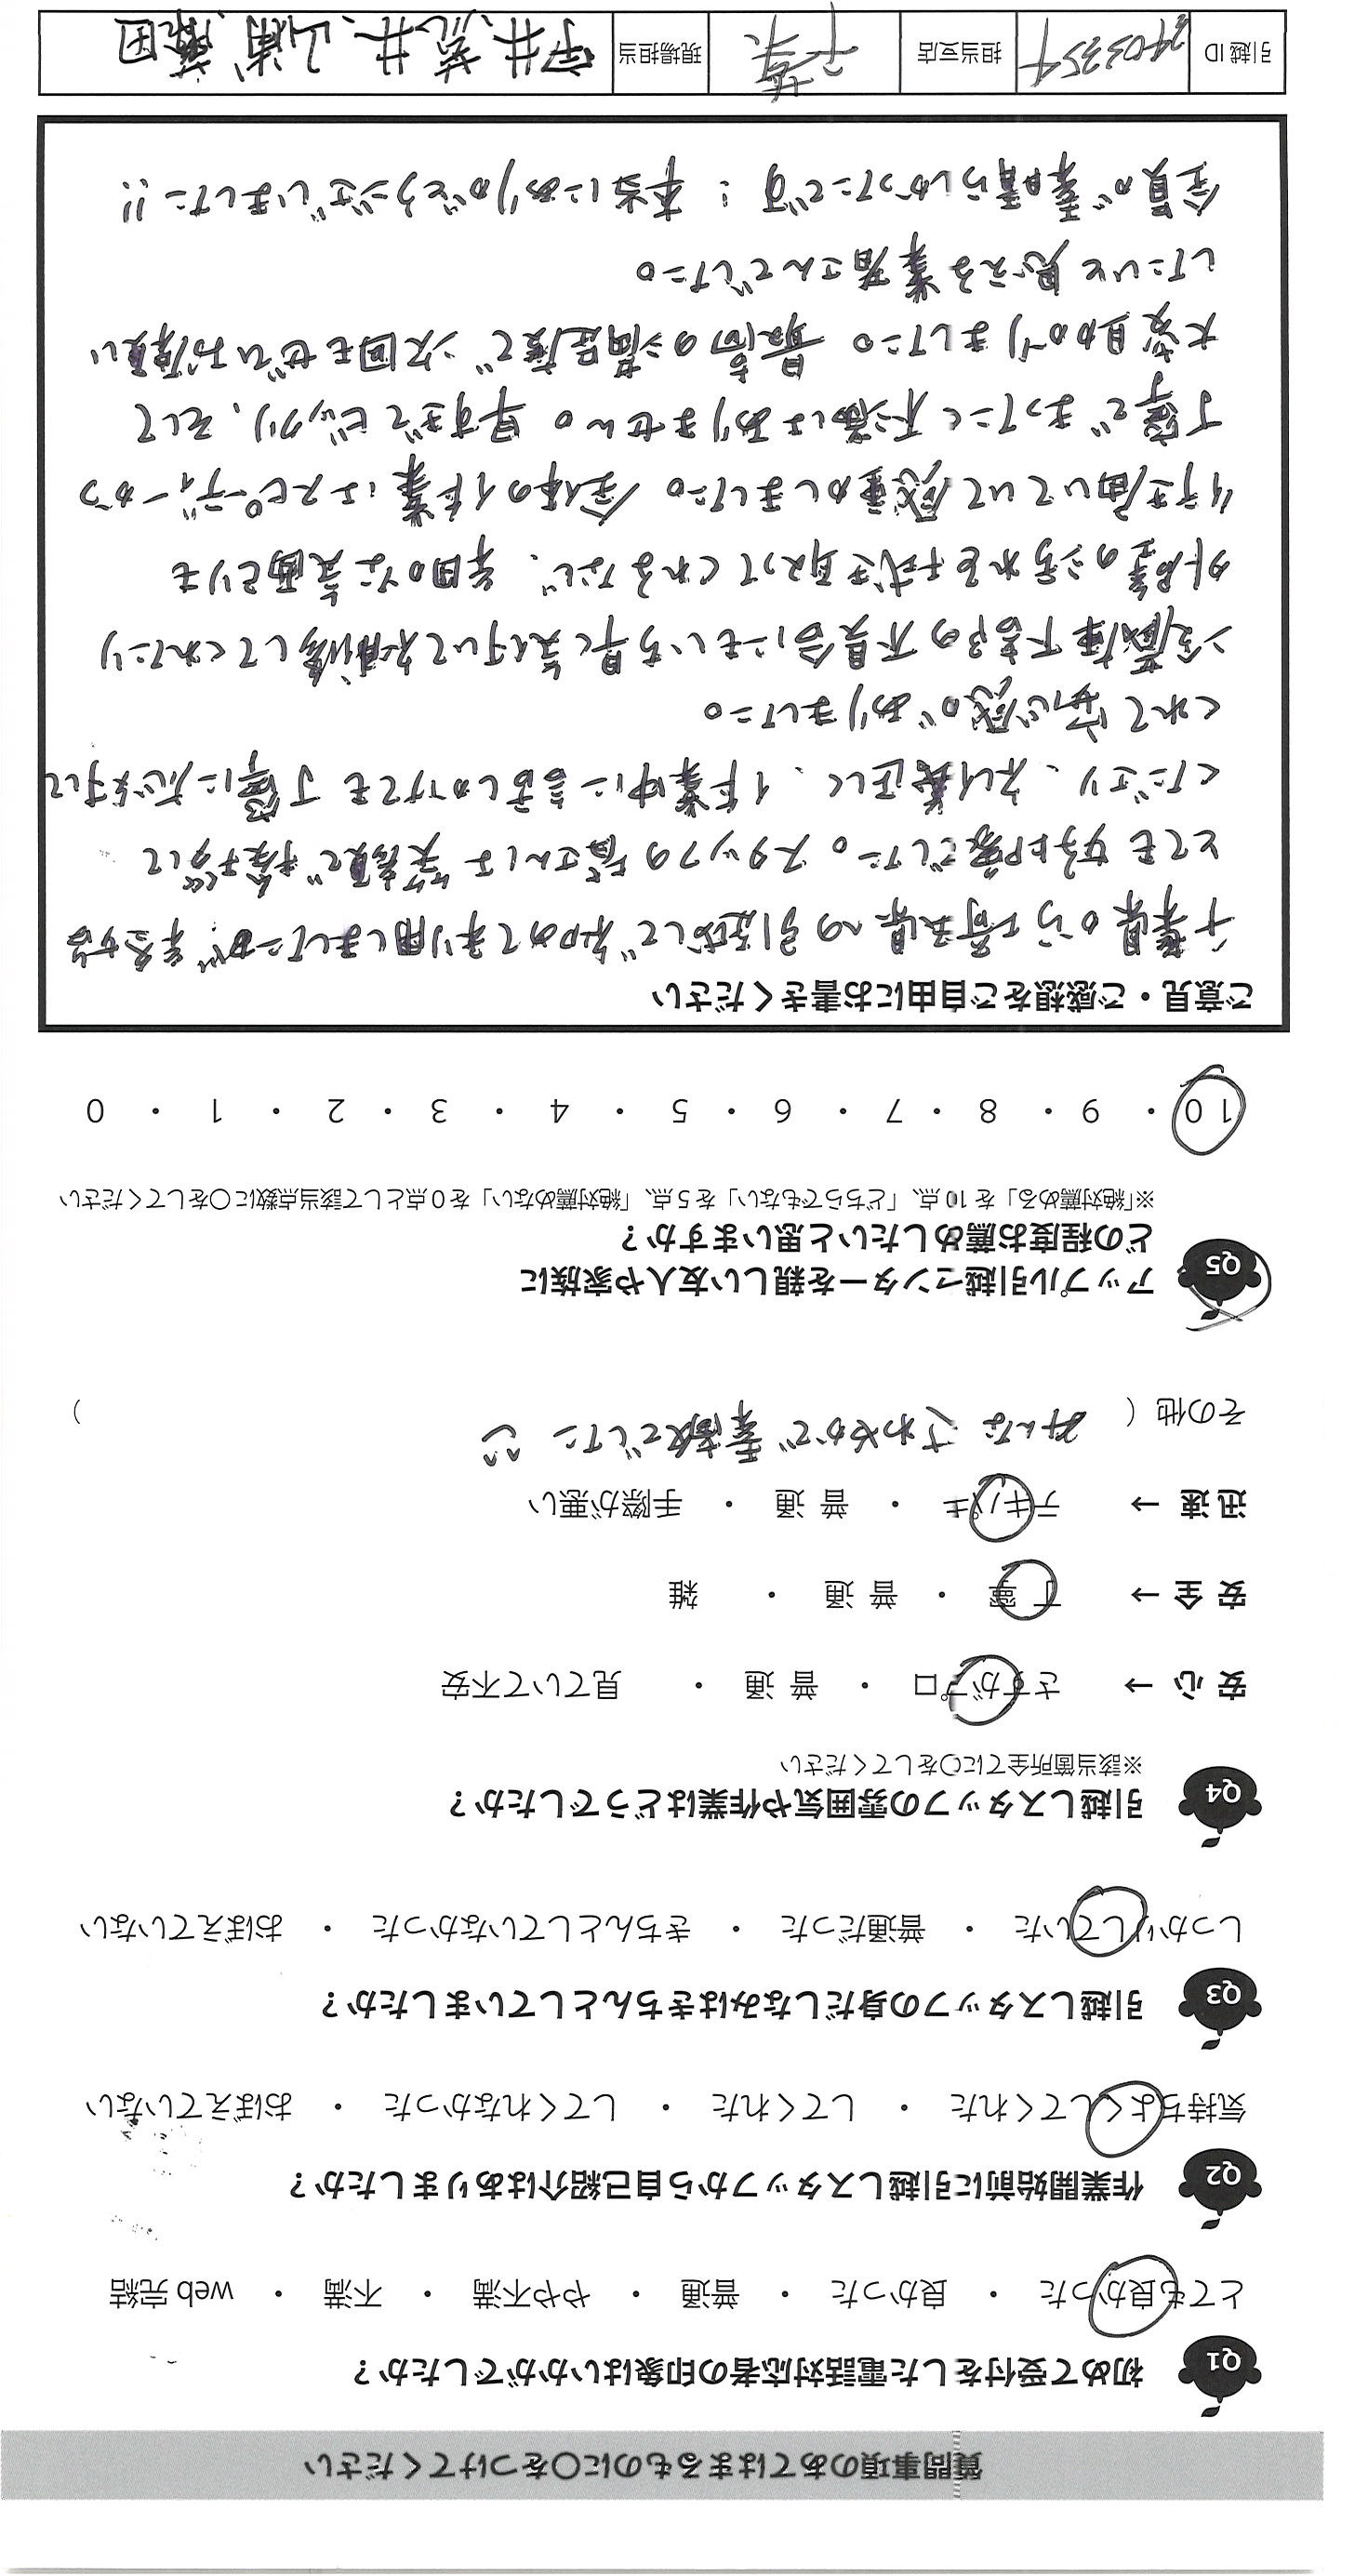 質問事項のあてはまるものに○をつけてください
Q1 初めて受付をした電話対応者の印象はいかがでしたか?
とても良かった ・ 良かった ・ 普通 ・ やや不満 ・ 不満 ・ web 完結
Q2 作業開始前に引越しスタッフから自己紹介はありましたか?
気持ちよくしてくれた ・ してくれた ・ してくれなかった ・ おぼえていない
Q3 引越しスタッフの身だしなみはきちんとしていましたか?
しっかりしていた ・ 普通だった ・ きちんとしていなかった ・ おぼえていない
Q4 引越しスタッフの雰囲気や作業はどうでしたか?
※該当箇所全てに○をしてください
安 心 → さすがプロ ・ 普 通 ・ 見ていて不安
安 全 → 丁 寧 ・ 普 通 ・ 雑
迅 速 → テキパキ ・ 普 通 ・ 手際が悪い
その他 ( みんなさわやかで素敵でした )
Q5 アップル引越センターを親しい友人や家族に
どの程度お薦めしたいと思いますか?
※「絶対薦める」を 10 点、「どちらでもない」を 5 点、「絶対薦めない」を 0 点として該当点数に○をしてください
10 ・ 9 ・ 8 ・ 7 ・ 6 ・ 5 ・ 4 ・ 3 ・ 2 ・ 1 ・ 0
ご意見・ご感想をご自由にお書きください
千葉県から埼玉県への引越しで初めて利用しましたが、業者様は
とても好印象でした。スタッフの皆さんは笑顔で挨拶して
くださり、礼儀正しく、作業中に話しかけても丁寧に応対して
くれて安心感がありました。
冷蔵庫下部の不具合にもいち早く気付いて補修してくれたり
外壁の汚れを拭き取ってくれるなど、細かな気配りも
行き届いていて感動しました。全体の作業はスピーディーかつ
丁寧でまったく不満はありません。早すぎてビックリ、そして
大変助かりました。最高の満足度で次回もぜひお願い
したいと思える業者さんでした。
全員が素晴らしかったです! 本当にありがとうございました!!
引越 ID 2403354 担当支店 千葉 現場担当 宇井、荒井、山浦、藤田